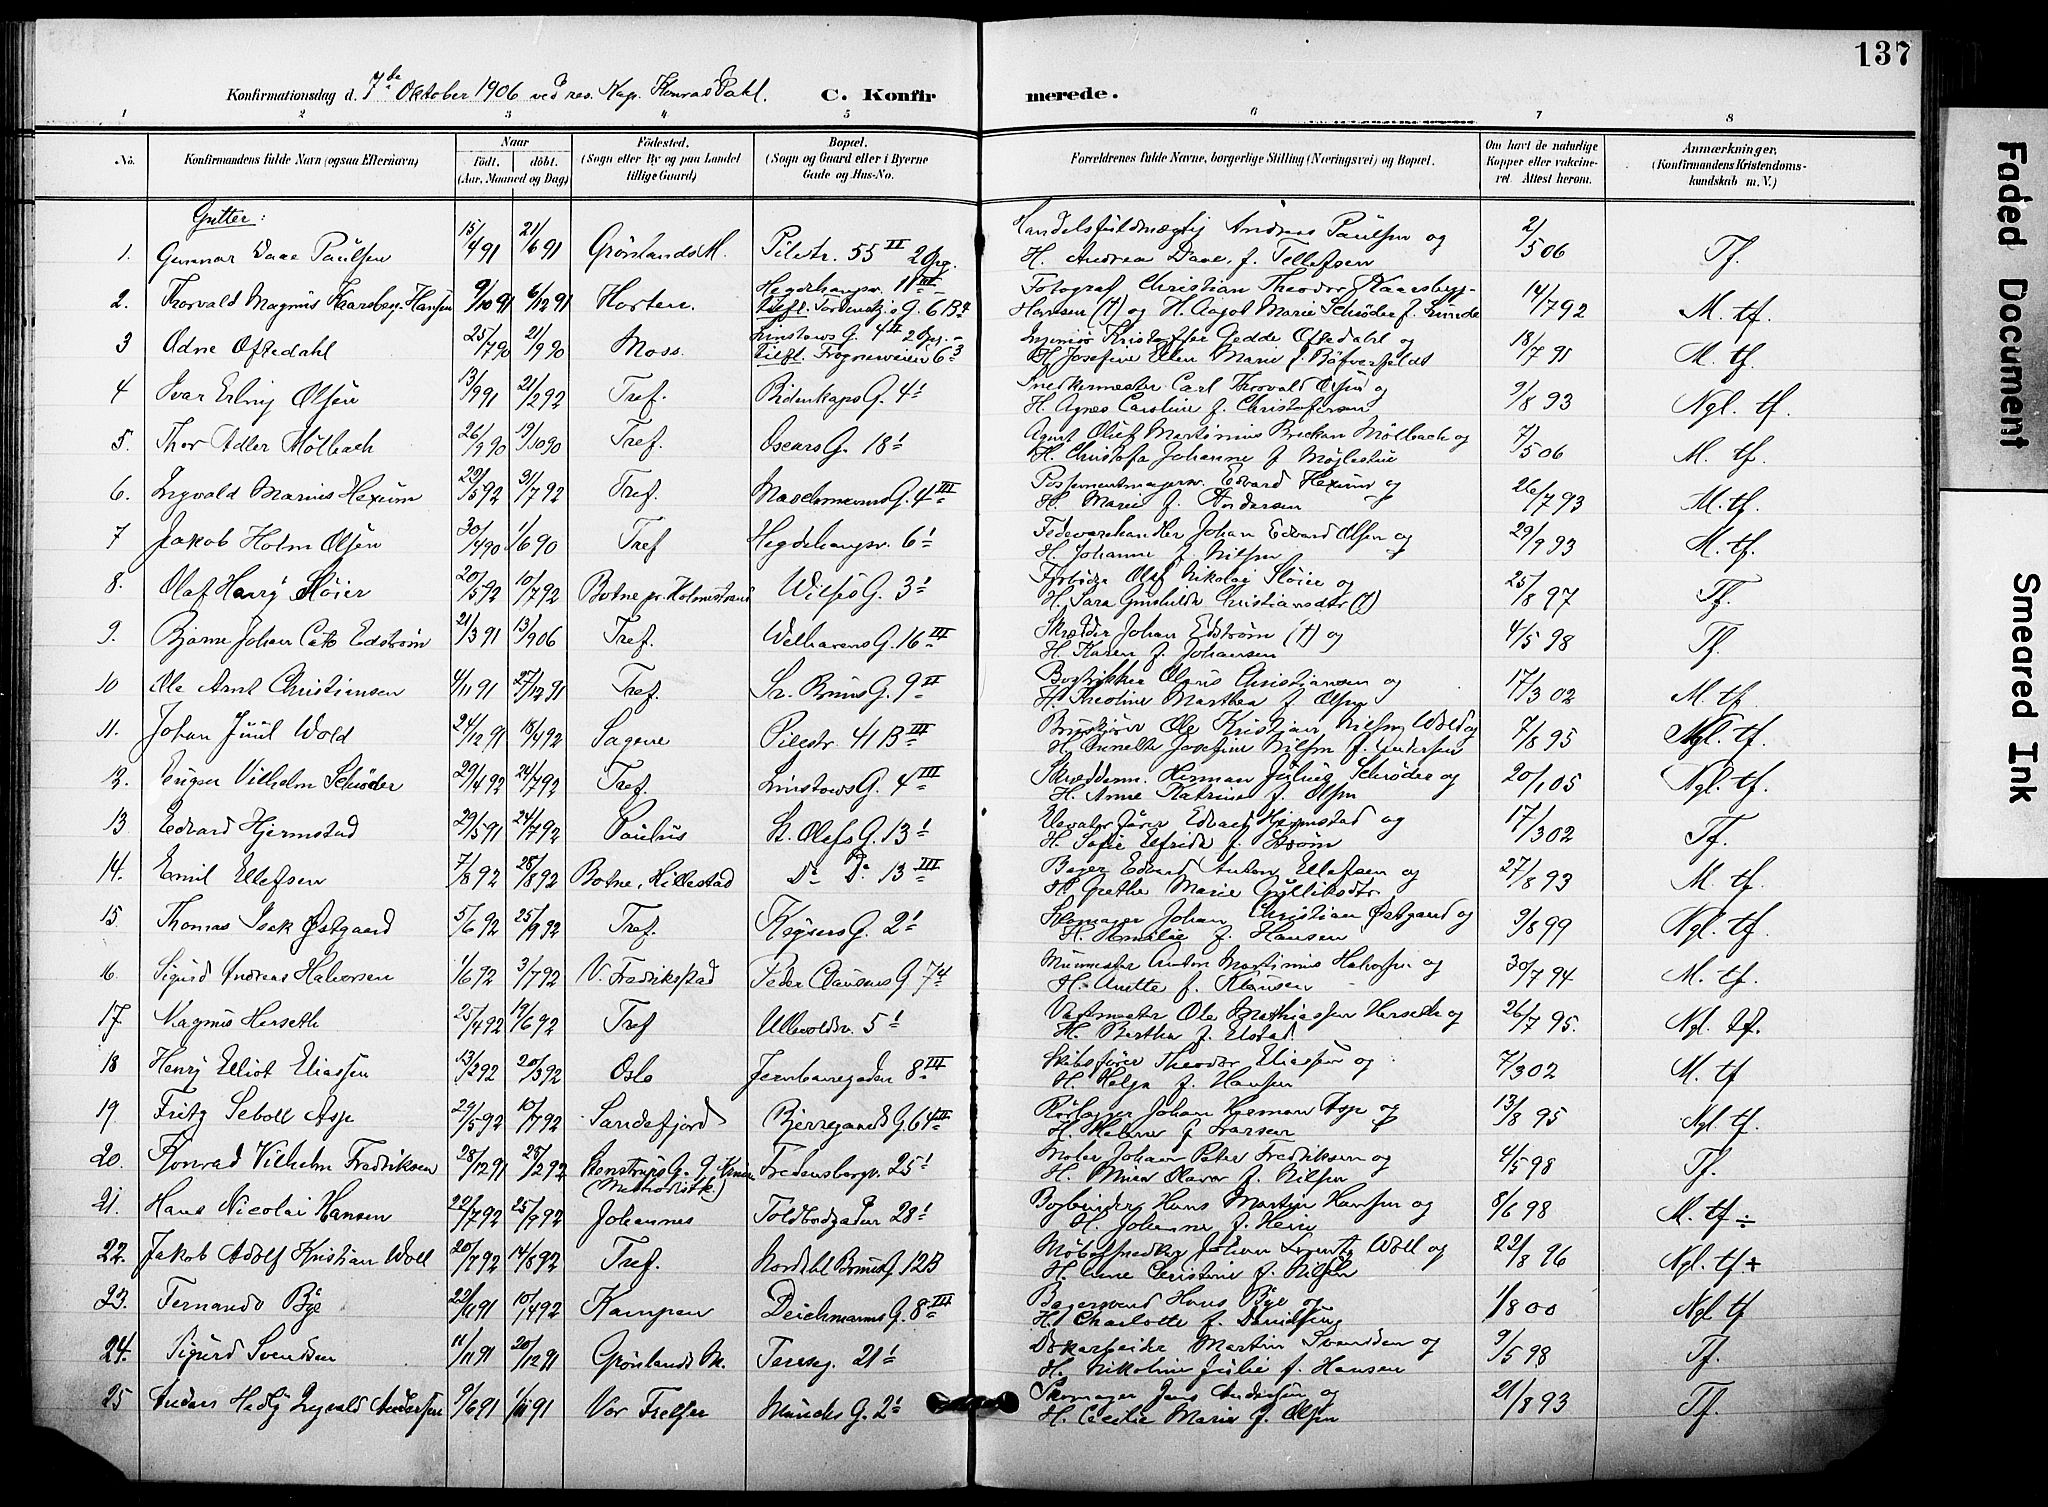 137
Konfirmationsdag d. 7de Oktober 1906 ved res. Kap. Konrad Dahl. C. Konfirmerede.
1 2 3 4 5 6 7 8
No. Konfirmandens fulde Navn (ogsaa Efternavn) Naar födt. döbt. (Aar, Maaned og Dag) Födested. (Sogn eller By og paa Landet tillige Gaard) Bopæl. (Sogn og Gaard eller i Byerne Gade og Hus-No. Forældrenes fulde Navne, borgerlige Stilling (Næringsvei) og Bopæl. Om havt de naturlige Kopper eller vakcineret. Attest herom. Anmærkninger, (Konfirmandens Kristendomskundskab m. V.)
Gutter:
1. Gunnar Daae Paulsen 15/4 91 21/6 91 Grønlands M. Pilestr. 55 II 2 Opg. Handelsfuldmægtig Andreas Paulsen og H. Andrea Daae f. Tellefsen 2/5 06 Tf.
2. Thorvald Magnus Kaarsberg-Hansen 9/10 91 6/12 91 Horten. Hegdehaugsv. 11 III Tilfl. Tordenskj. G. 6 B 4 Fotograf Christian Theodor Kaarsberg-Hansen (†) og H. Aagot Marie Schrøder f. Lunde 14/7 92 M. tf.
3 Odne Oftedahl 25/7 90 21/9 90 Moss. Linstows G. 4 II 2 Opg. - Tilfl. Frognerveien 6 3 Ingeniør Kristoffer Gedde Oftedahl og H. Josefine Ellen Marie f. 18/7 91 M. tf.
4 Ivar Erling Olsen 13/9 91 21/2 92 Tref. Bidenkaps G. 4 I Snedkermester Carl Thorvald Olsen og H. Agnes Caroline f. Christofersen 9/8 93 Ngl. tf.
5. Thor Adler Mølbach 26/9 90 19/10 90 Tref. Oscars G. 18 I Agent Oluf Martinius Mølbach og H. Christofa Johanne f. 7/5 06 M. tf.
6. Ingvald Marius Hexum 22/5 92 31/7 92 Tref. Maschmanns G. 4 III Possementmagersv. Edvard Hexum og H. Marie f. Andersen 26/7 93 M. tf.
7 Jakob Holm Olsen 30/4 90 1/6 90 Tref Hegdehaugsv. 6 I Fedevarehandler Johan Edvard Olsen og H. Johanne f. Nilsen 29/9 93 M. tf.
8. Olaf Harry Sløier 20/5 92 10/7 92 Botne pr. Holmestrand Wilses G. 3 I Fyrbøder Olaf Nikolai Sløier og H. Sara Gunhilda Christiansdtr (†) 25/8 97 Tf.
9. Bjarne Johan Cato Edstrøm 21/3 91 13/9 06 Tref. Welhavens G. 16 III Skrædder Johan Edstrøm (†) og H. Karen f. Johansen 4/5 98 Tf.
10 Ole Arnt Christiansen 4/11 91 27/12 91 Tref. Kr. Bruns G. 9 II Bogtrykker Olaus Christiansen og H. Theoline Marthea f. Olsen 17/3 02 M. tf.
11. Johan Juul Wold 24/12 91 18/4 92 Sagene Pilestr. 41 B III Ole Kristian Nilsen Wold og H. Josefine Nilsen f. Andersen 7/8 95 Ngl. tf.
12. Vilhelm Schrøder 29/4 92 24/7 92 Tref. Linstows G. 4 III Skrædderm. Herman Julius Schrøder og H. Anne Katrine f. Olsen 20/1 05 Ngl. tf.
13 Edvard Hjermstad 29/5 91 24/7 92 Paulus St. Olafs G. 13 I Elevatorfører Edvard Hjermstad og H. Sofie Elfrida f. Strøm 17/3 02 Tf.
14. Emil Ellefsen 7/8 92 28/8 92 Botne, Hillestad Do Do 13 III Bager Edvard Anton Ellefsen og H. Grethe Marie Gulliksdtr. 27/8 93 M. tf.
15 Thomas Isak Østgaard 5/6 92 25/9 92 Tref. Keysers G. 2 I Skomager Johan Christian Østgaard og H. Amalie f. Hansen 9/8 99 Ngl. tf.
16. Sigurd Andreas Halvorsen 1/6 92 3/7 92 V. Fredrikstad Peder Clausøns G. 7 4 Murmester Anton Martinius Halvorsen og H. Anette f. Klausen 30/7 94 M. tf.
17 Magnus Herseth 25/4 92 19/6 92 Tref Ullevoldsv. 5 I Vagtmester Ole Mathiassen Herseth og H. Berthe f. Elstad 26/7 95. Ngl. tf.
18 Henry Elliot Eliassen 13/2 92 20/3 92 Oslo Jernbanegaden 8 III Skibsfører Theodor Eliassen og H. Helga f. Hansen 7/3 02 M. tf
19. Fritz Sebolt Asp 29/5 92 10/7 92 Sandefjord Bjerregaards G. 64 III Rørlægger Johan Herman Asp og H. Helene f. Larsen 13/8 95 Ngl. tf.
20. Konrad Vilhelm Fredriksen 28/12 91 28/2 92 Stenstrups G. (Methodistk.) Fredensborgv. 25 I Maler Johan Peter Fredriksen og H. Mina Olava f. Nilsen 4/5 98 Tf.
21. Hans Nicolai Hansen 22/7 92 25/9 92 Johannes Toldbodgaden 28 I Bogbinder Hans Martin Hansen og H. Johanne f. Heie 8/6 98 M. tf ÷
22. Jakob Adolf Kristian Woll 20/7 92 14/8 92 Tref. Nordahl Brunsg. 12B Møbelsnedker Johan Lorentz Woll og H. Anne Christine f. Nilsen 22/8 96 Ngl. tf. +
23. Fernando Bye 22/11 91 10/4 92 Kampen Deichmanns G. 8 III Bagersvend Hans Bye og H. Charlotte f. Davidsen 1/8 00 Ngl. tf
24. Sigurd Svendsen 11/11 91 20/12 91 Grønlands M. Tereseg. 21 I Dokarbeider Martin Svendsen og H. Nikoline Julie f. Hansen 9/5 98 Tf.
25 Anders Hedly Ingvald Andersen 9/6 91 1/11 91 Vor Frelser Munchs G. 2 I Skomager Jens Andersen og H. Cecilie Marie f. Olsen 21/8 93 Tf.
Faded Document
Smeared Ink